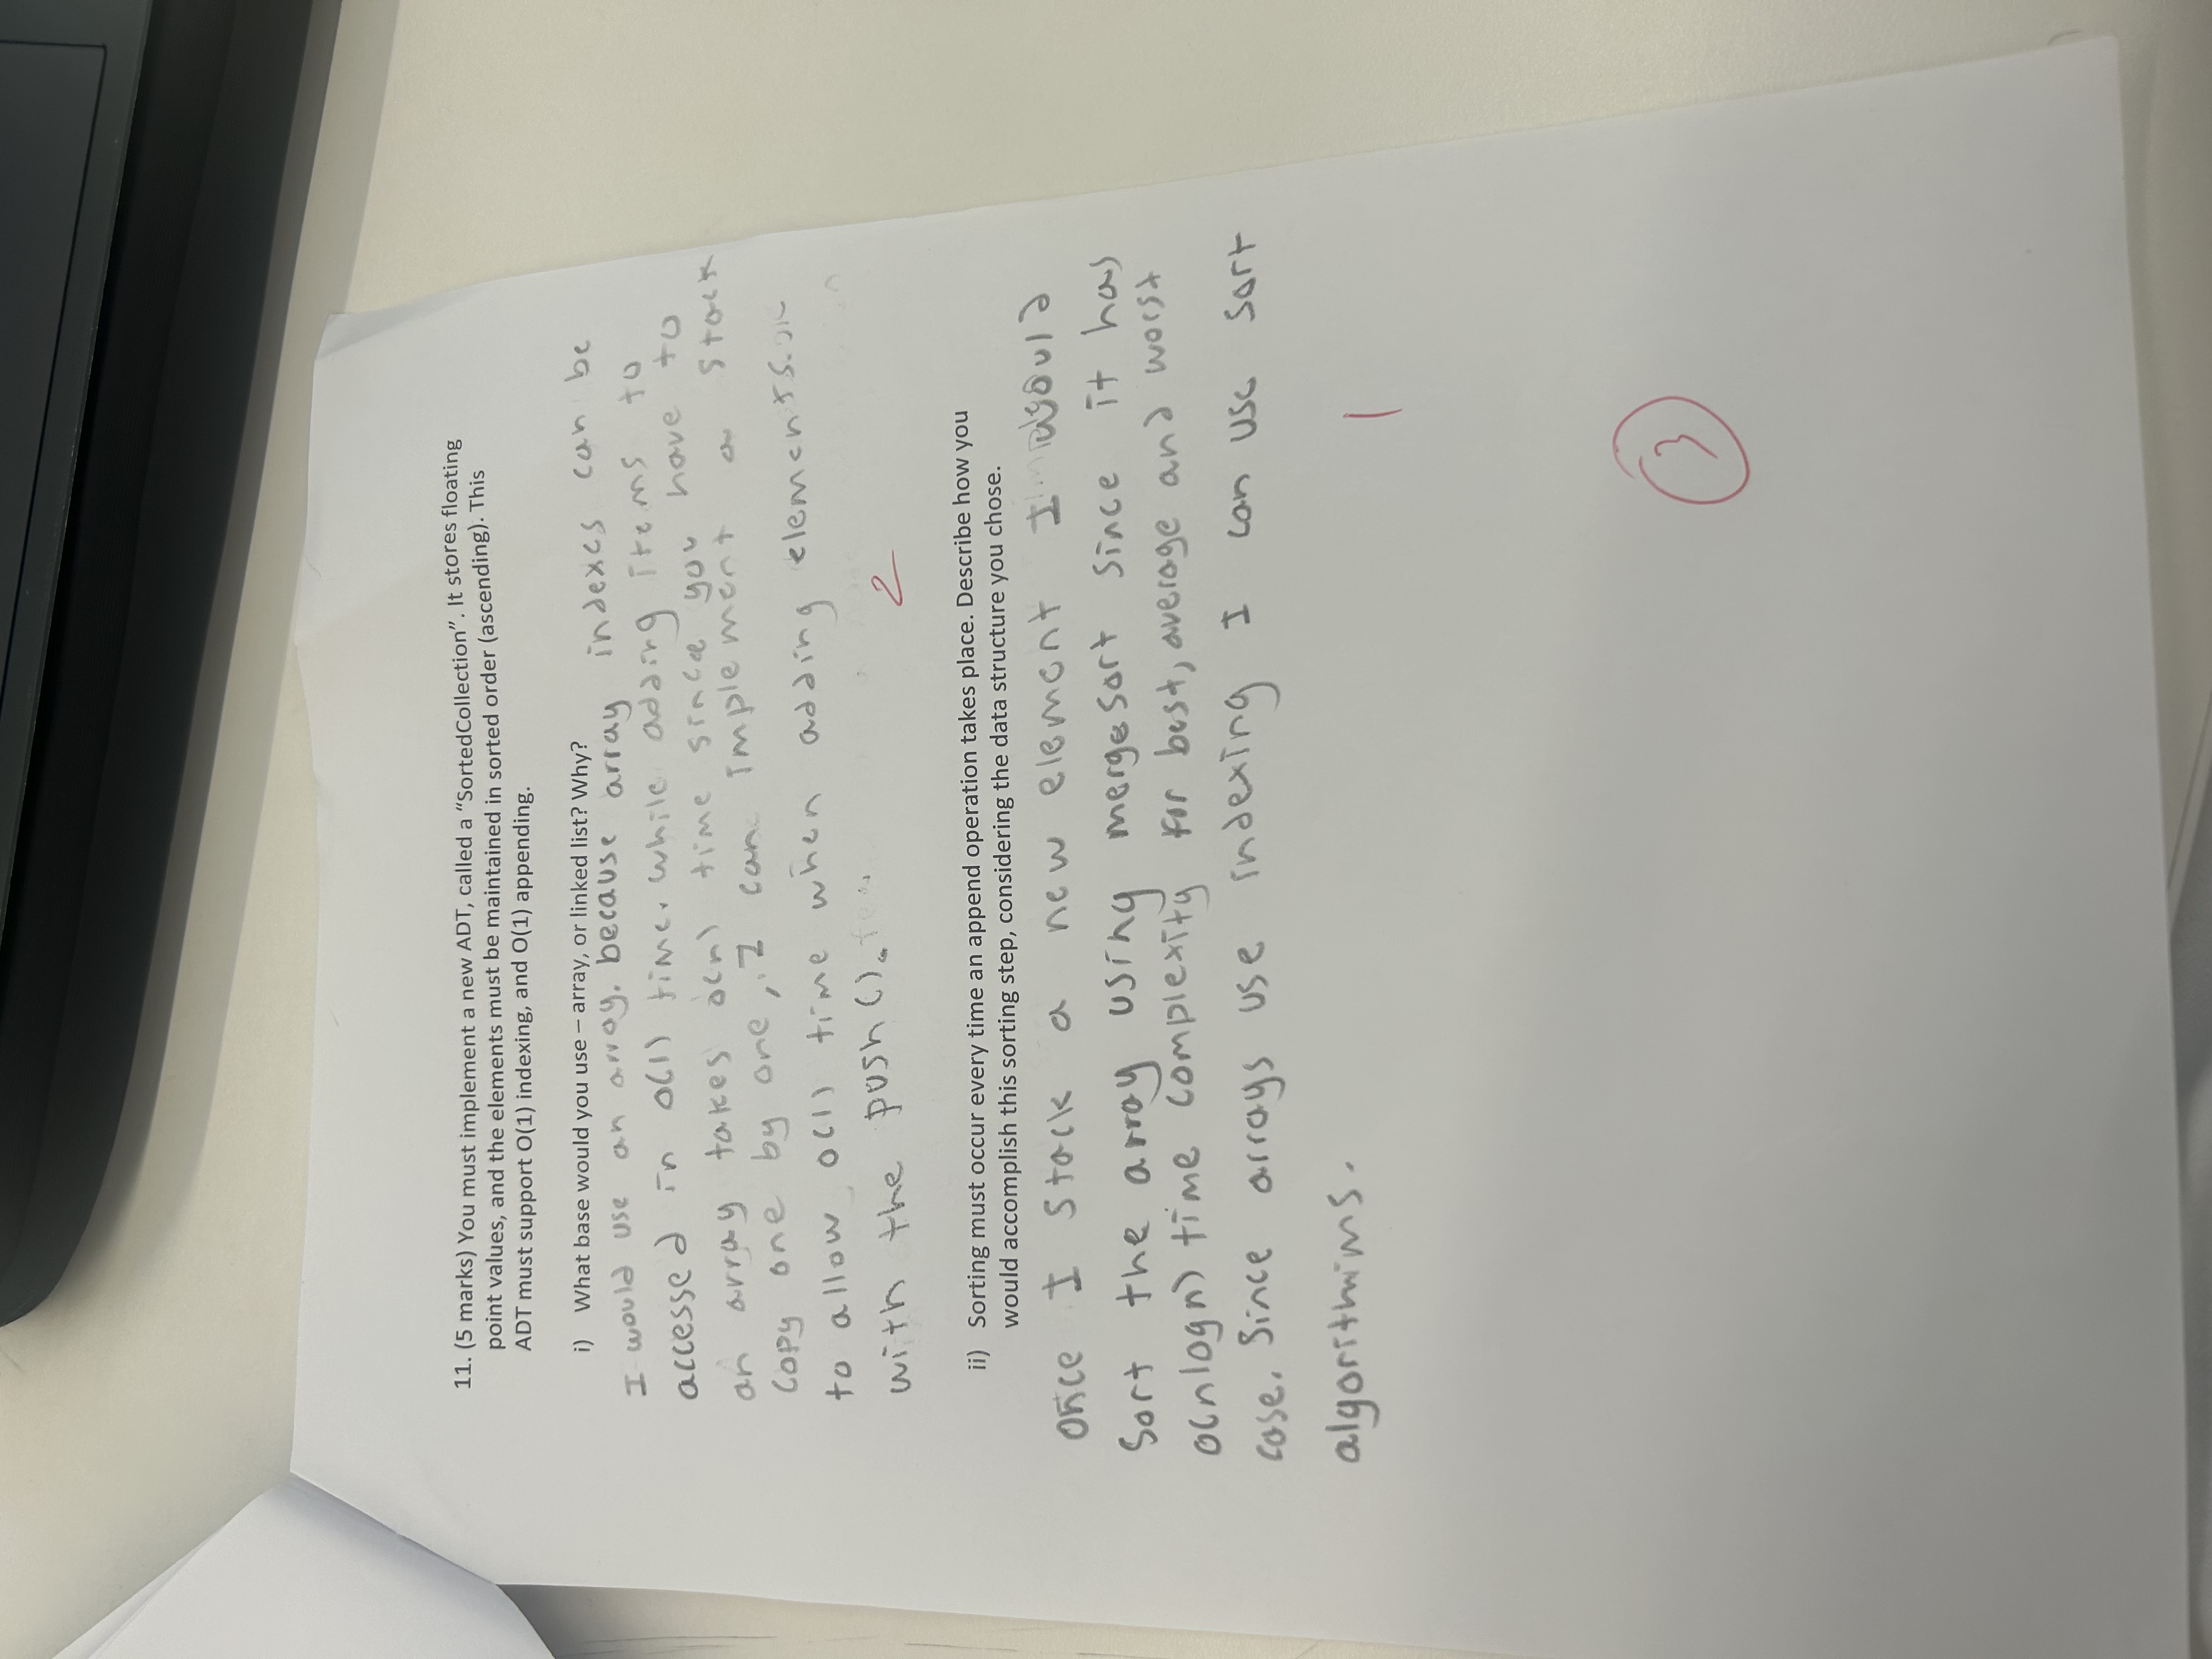 11. (5 marks) You must implement a new ADT, called a “SortedCollection”. It stores floating
point values, and the elements must be maintained in sorted order (ascending). This
ADT must support O(1) indexing, and O(1) appending.
i) What base would you use – array, or linked list? Why?
I would use an array. because array indexes can be
accessed in O(1) time. while adding items to
an array takes O(n) time since you have to
copy one by one, I can implement a stack
to allow O(1) time when adding elements.
with the push().
2
ii) Sorting must occur every time an append operation takes place. Describe how you
would accomplish this sorting step, considering the data structure you chose.
Once I stack a new element I would
Sort the array using mergesort since it has
O(nlogn) time complexity for best, average and worst
case. Since arrays use indexing I can use sort
algorithims.
1
3